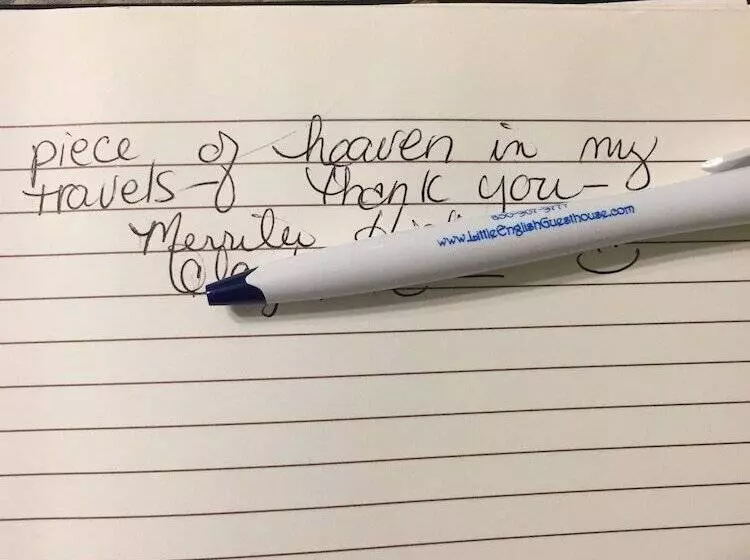 piece of heaven in my
travels - thank you -
Merrilee
www.LittleEnglishGuesthouse.com